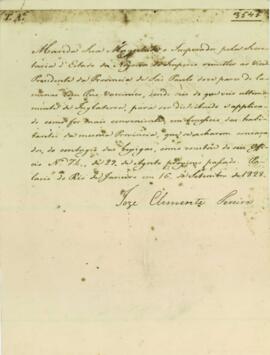 3541
Manda Sua Magestade o Imperador pela Secre-
taria d'Estado dos Negocios do Imperio remetter ao Vice
Presidente da Provincia de São Paulo doze pares de la-
minas com Pus Vaccinico, que ultima-
mente de Inglaterra, para ser distribuido e applica-
do como for mais conveniente, em beneficio dos habi-
tantes da mesma Provincia, que se acharem ameaça-
dos do contagio das bexigas, como em seu Of-
ficio Nº 74, de 29 de Agosto proximo passado. Pa-
lacio do Rio de Janeiro em 16 de Setembro de 1828.
Joze Clemente Pereira